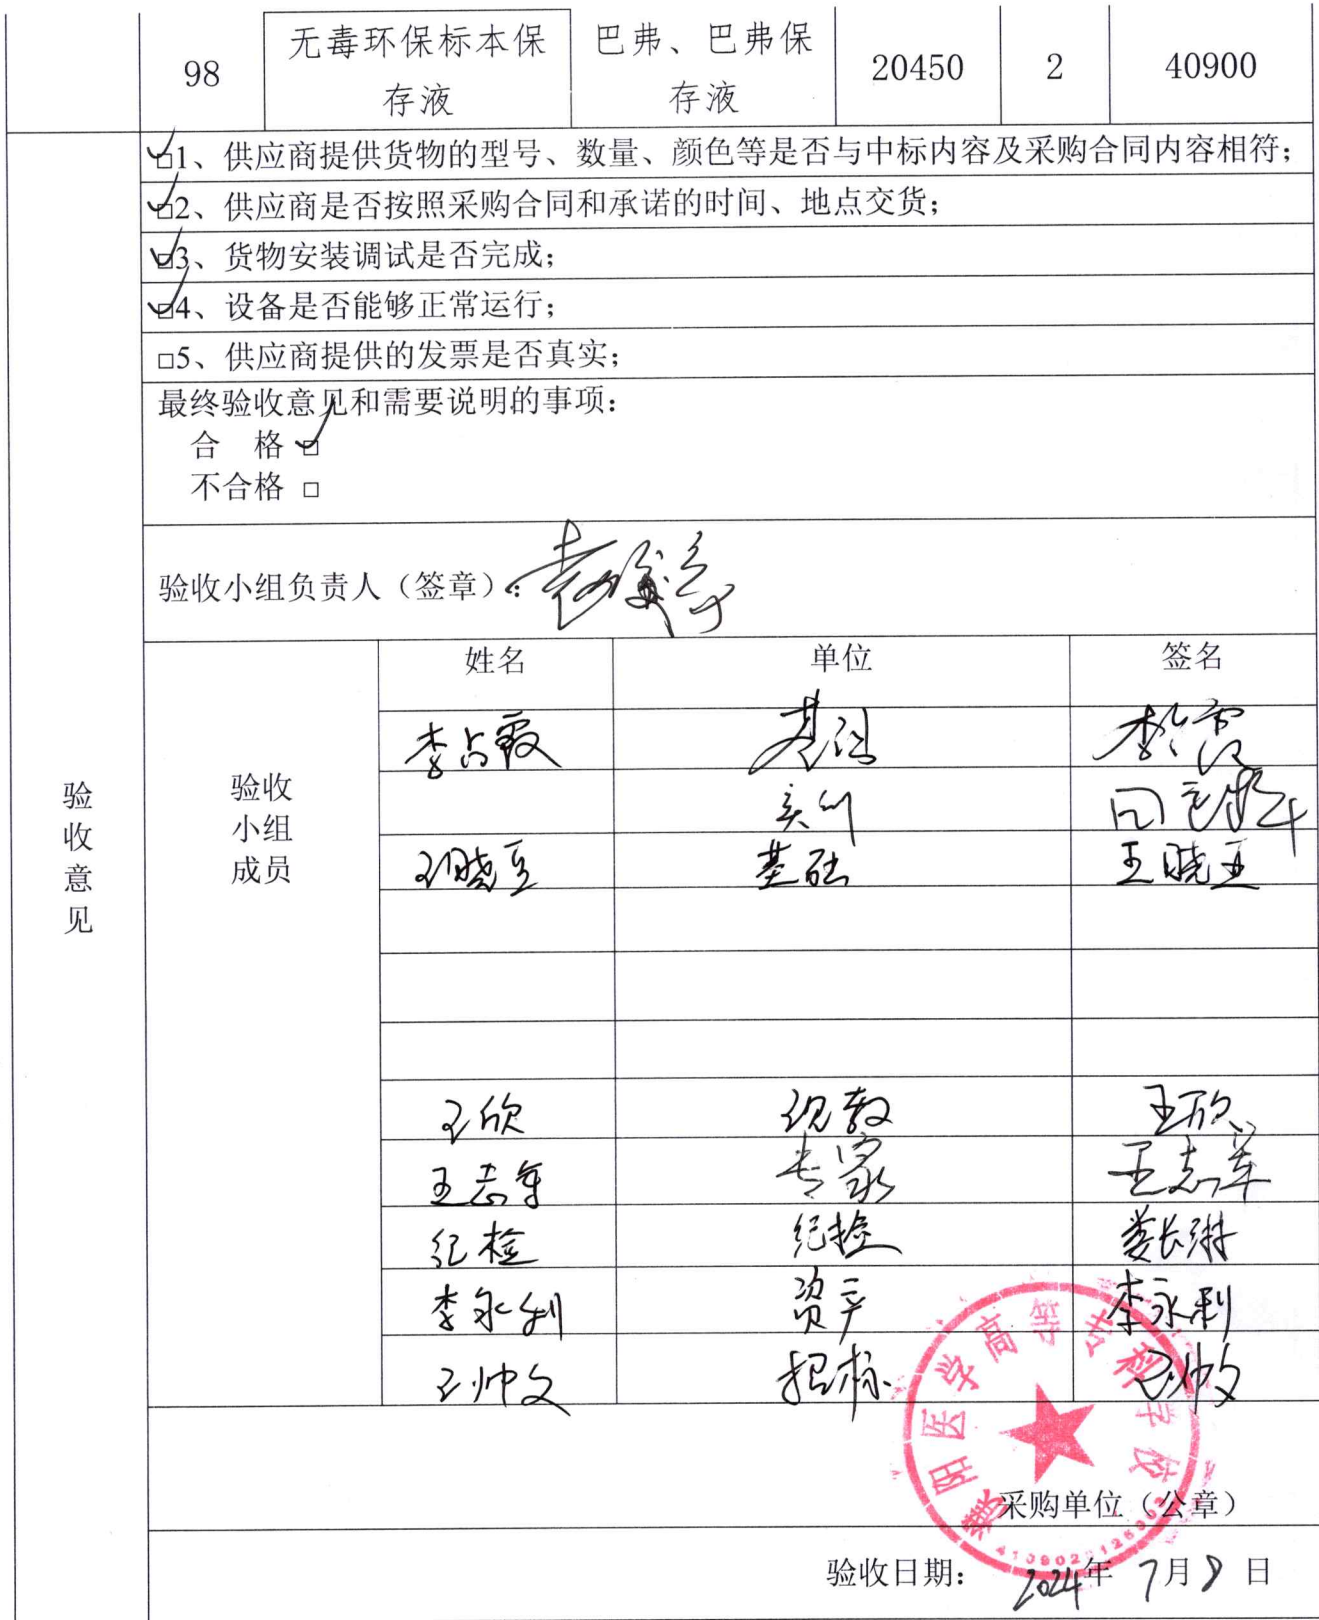 98 无毒环保标本保存液 巴弗、巴弗保存液 20450 2 40900
□1、供应商提供货物的型号、数量、颜色等是否与中标内容及采购合同内容相符；
□2、供应商是否按照采购合同和承诺的时间、地点交货；
□3、货物安装调试是否完成；
□4、设备是否能够正常运行；
□5、供应商提供的发票是否真实；
最终验收意见和需要说明的事项：
合 格 □
不合格 □
验收小组负责人（签章）：
验收意见
验收小组成员
姓名 单位 签名
李占霞 基础 李占霞
实训
王晓亚 基础 王晓亚
王欣 现教 王欣
王志军 专家 王志军
纪检 纪检 娄长琳
李永利 资产 李永利
王帅文 招标 王帅文
濮阳医学高等专科学校
采购单位（公章）
验收日期： 2024年 7月8日